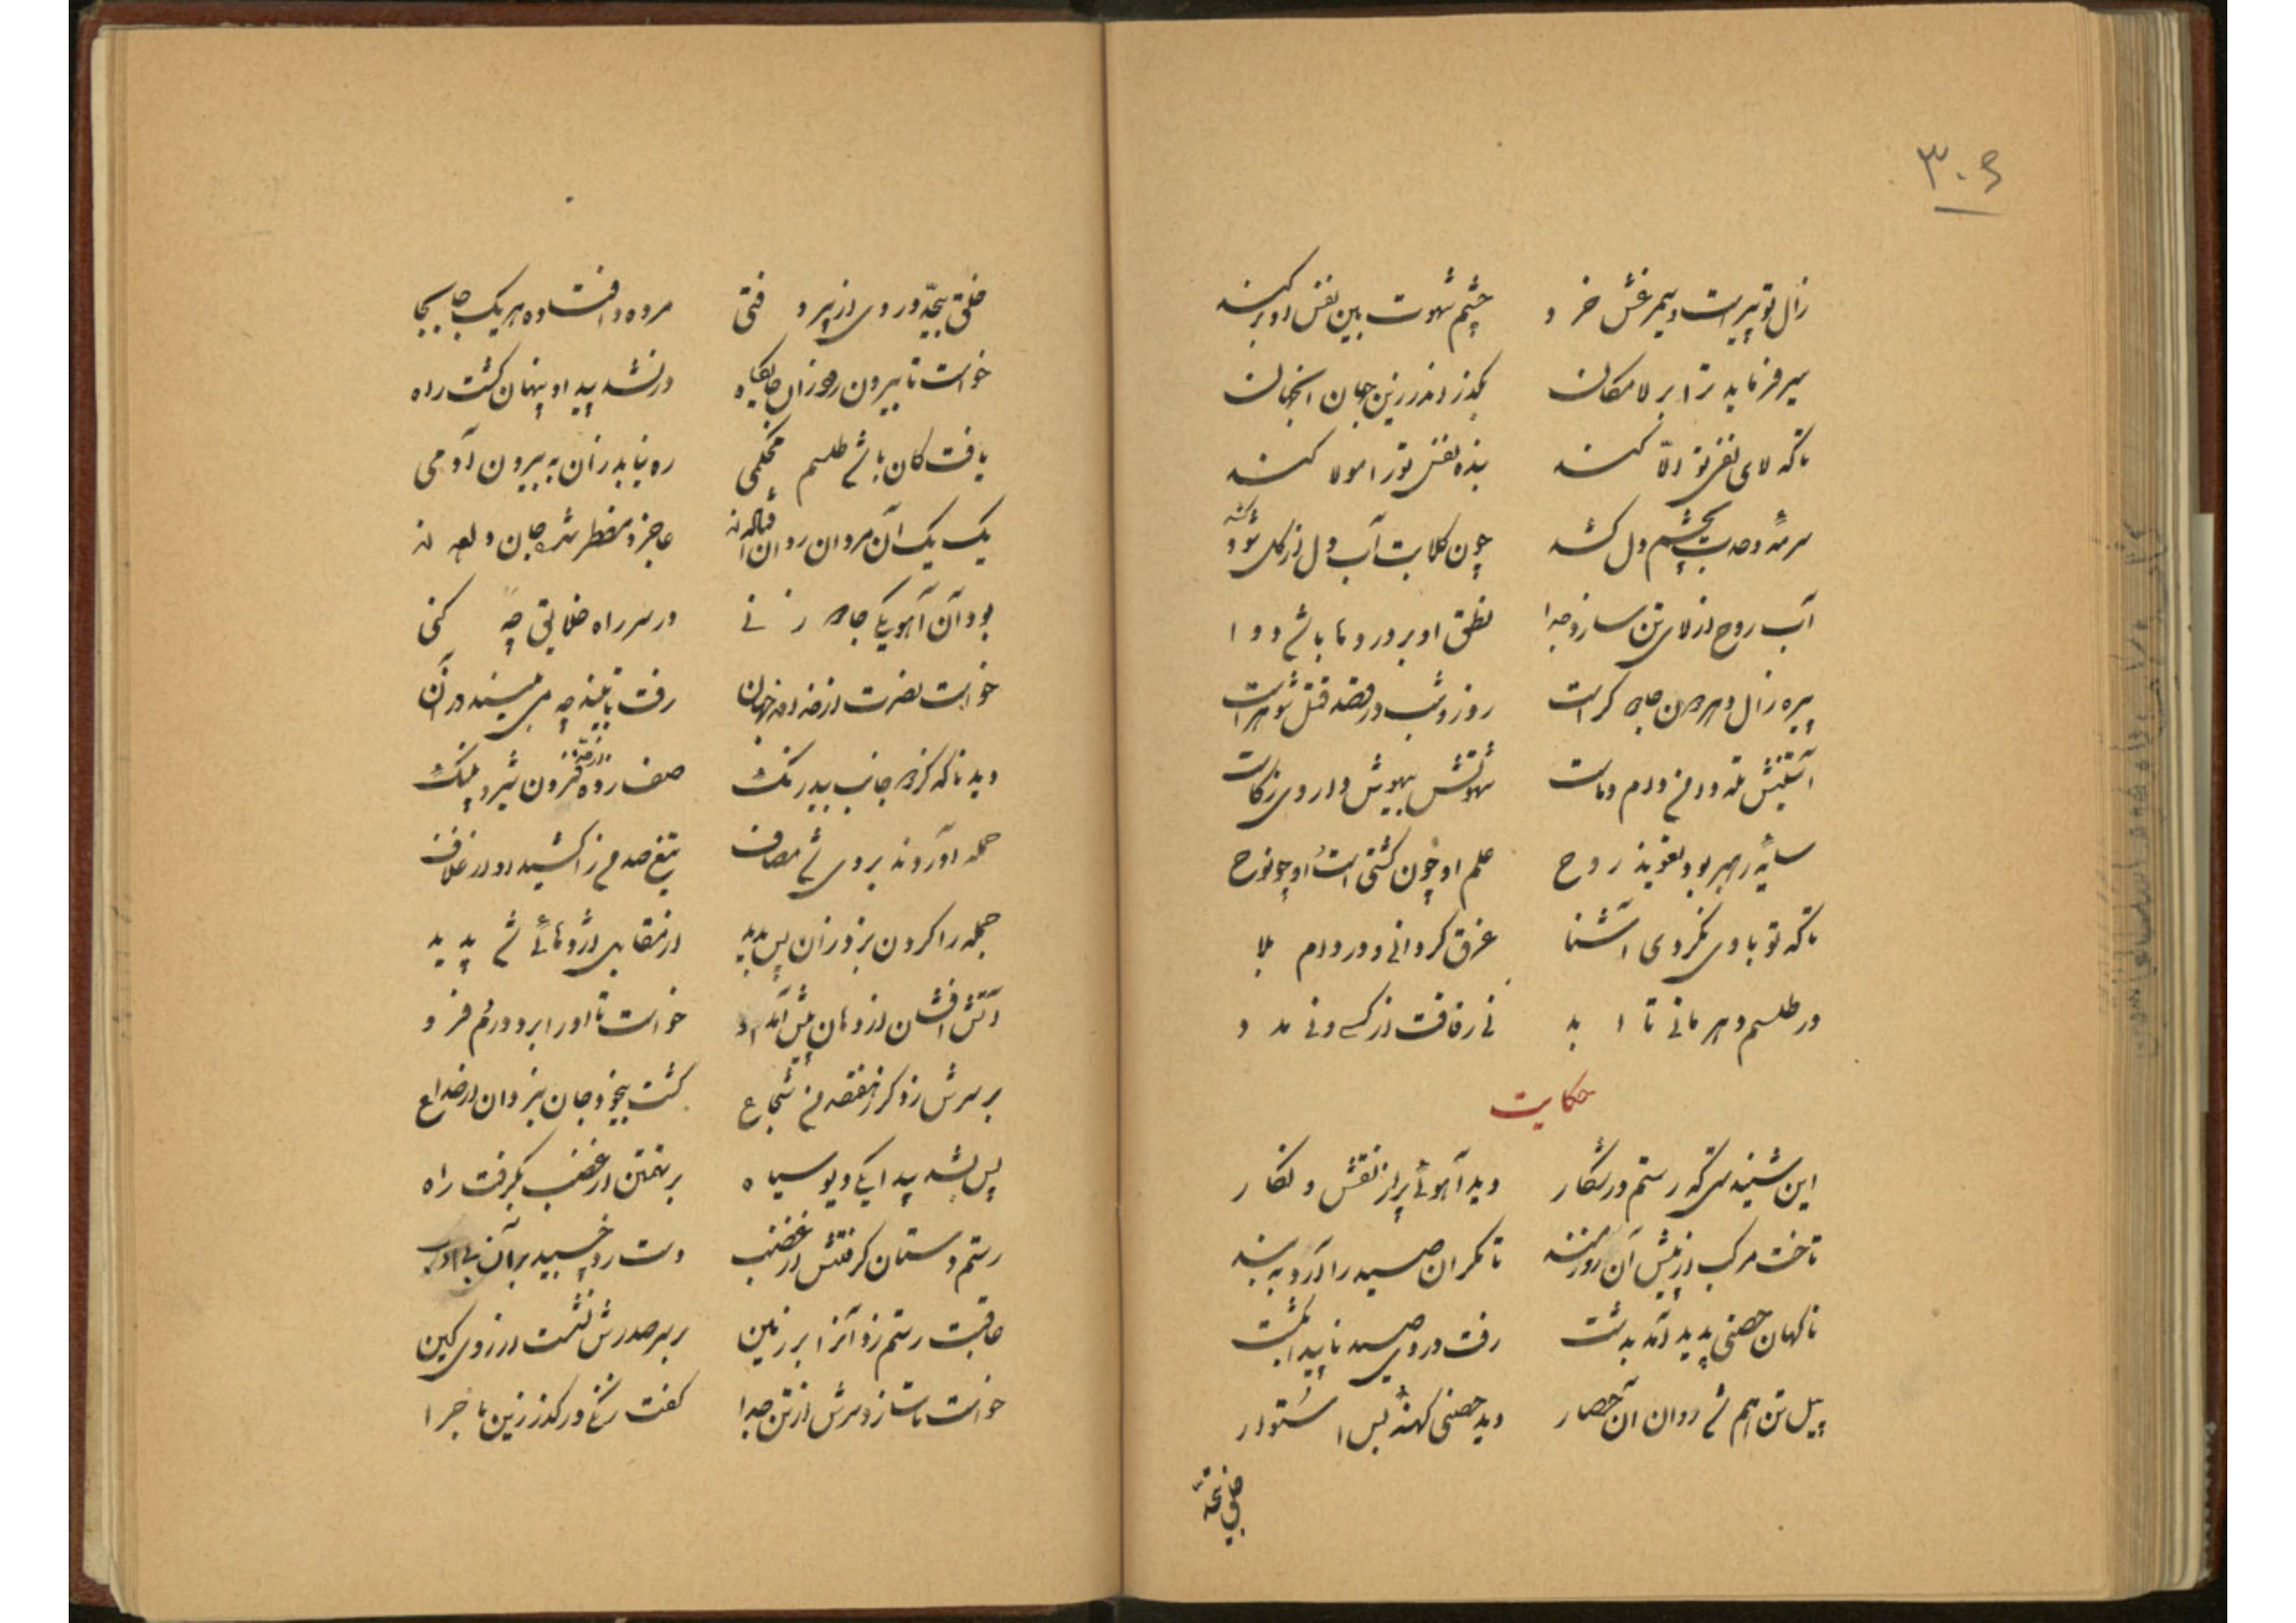 ۳۰۶
زال تو پیر است و سیمرغش خرد چشم شهوت بین نفس او بر کند
سیر فرماید ترا بر لا مکان بگذر اندر زین جهان آنجهان
تا که لای نفس تو الّا کند بنده نفس تو را مولا کند
سرمهٔ وحدت بچشم دل کشد چون کلابت آب دل از گل شود
کشد
آب روح از لای تن سازد جدا نطق او بر درد ما باشد دوا
پیره زال دهر چاه کر است روز و شب در قصد قتل شوهر است
شهوتش بیهوش داروی زکات
سایهٔ رهبر بود تعویذ روح علم او چون کشتی است او چو نوح
تا که تو با وی نگردی آشنا غرق گردانی و در دام بلا
در طلسم دهر مانی تا ابد نی رفاقت از کسی و نی مدد
حکایت
این شنیدستی که رستم در شکار دید آهوئی پر از نقش و نگار
تاخت مرکب از پیش آن زورمند تا مگر آن صید را آرد به بند
ناگهان حصنی پدید آمد بدشت رفت در وی صید ناپیدا بگشت
پیل تن هم شد روان آن حصار دید حصنی کهنهٔ بس استوار
خلق بیحدّ در وی از پیر و فتی مرده و افتاده هر یک جا بجا
خواست تا بیرون رود زان جایگاه در نشد پیدا و پنهان گشت راه
یافت کان باشد طلسم محکمی ره نیابد زان به بیرون آدمی
یک یک آن مردان روان عاجز و مضطر شد
بود آن آهو یکی زنی در سر راه خلایق چه کنی
خواست نصرت از خداوند جهان رفت تا بیند چه می‌بیند در آن
دید ناگه کز جانب بیدرنگ صف زده افزون شیر و پلنگ
حمله آوردند بر وی شد مصاف تیغ صد من را کشید او از غلاف
جمله را گردن بزد زان پس بدید در مقابل اژدهائی شد پدید
آتش افشان از دهان پیش آمد او خواست تا او را برد در دم فرو
بر سرش زد گرز هفتصد من شجاع گشت بیخود جان بزد آن در صداع
پس بشد پیدا یکی دیو سیاه بر تهمتن از غضب بگرفت راه
رستم دستان گرفتش از غضب دست زد چسپید بر آن بی‌ادب
عاقبت رستم زد آنرا بر زمین بر سر صدرش نشست از روی کین
خواست تا سازد سرش از تن جدا گفت در گذر زین ماجرا
خلق بیحد